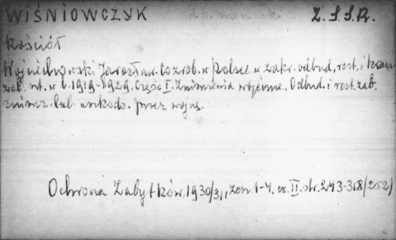 WIŚNIOWCZYK Z.S.S.R.
Kościół
Wojciechowski Jarosław. Co zrob. w Polsce w zakr. odbud., rest. i kons.
zab. szt. w l. 1919-1929. Część I. Zniszczenia wojenne. Odbud. i rest. zab.
zniszcz. lub uszkodz. przez wojnę.
Ochrona Zabytków, 1930/31, zesz. 1-4, cz. II. str. 273-318/252)